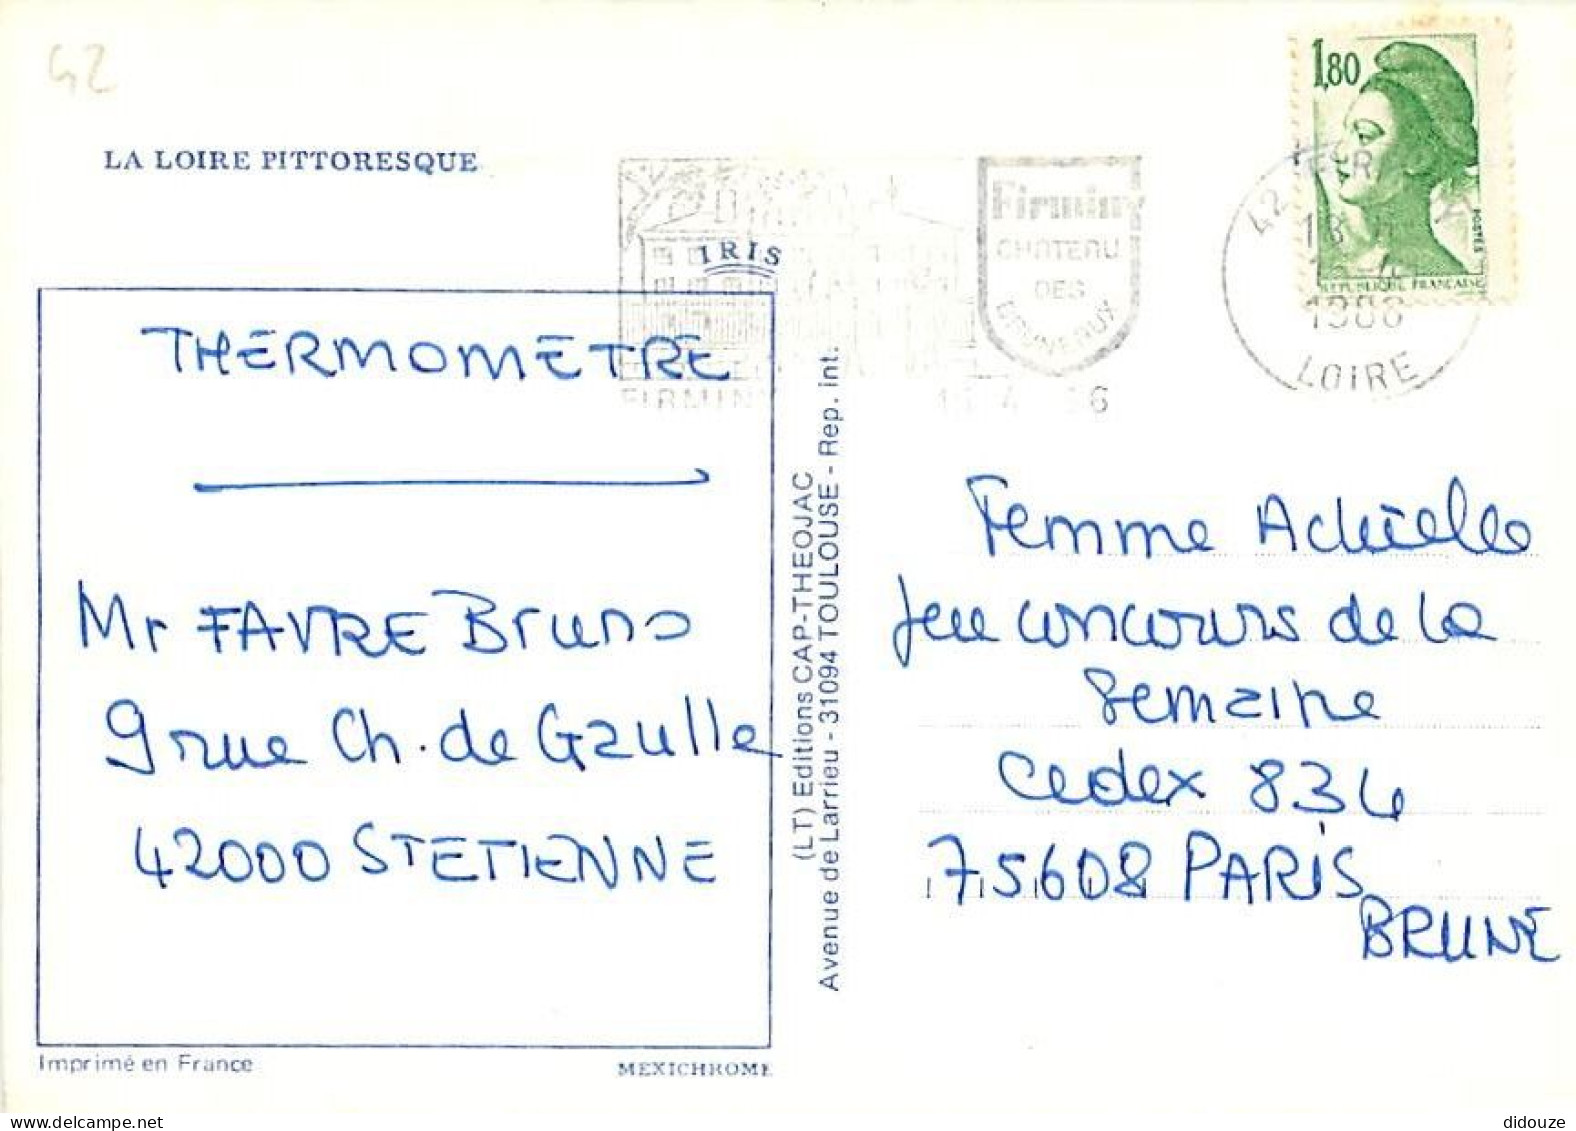 42
LA LOIRE PITTORESQUE
1,80
POSTES
REPUBLIQUE FRANÇAISE
IRIS
Firminy
CHATEAU
DES
BRUNEAUX
FIRMINY
42
1986
LOIRE
THERMOMETRE
Mr FAVRE Bruno
9 rue Ch. de Gaulle
42000 ST ETIENNE
Imprimé en France
MEXICHROME
(LT) Editions CAP-THEOJAC
Avenue de Larrieu - 31094 TOULOUSE - Rep. int.
Femme Actuelle
Jeu concours de la
Semaine
Cedex 834
75608 PARIS
BRUNE
didouze